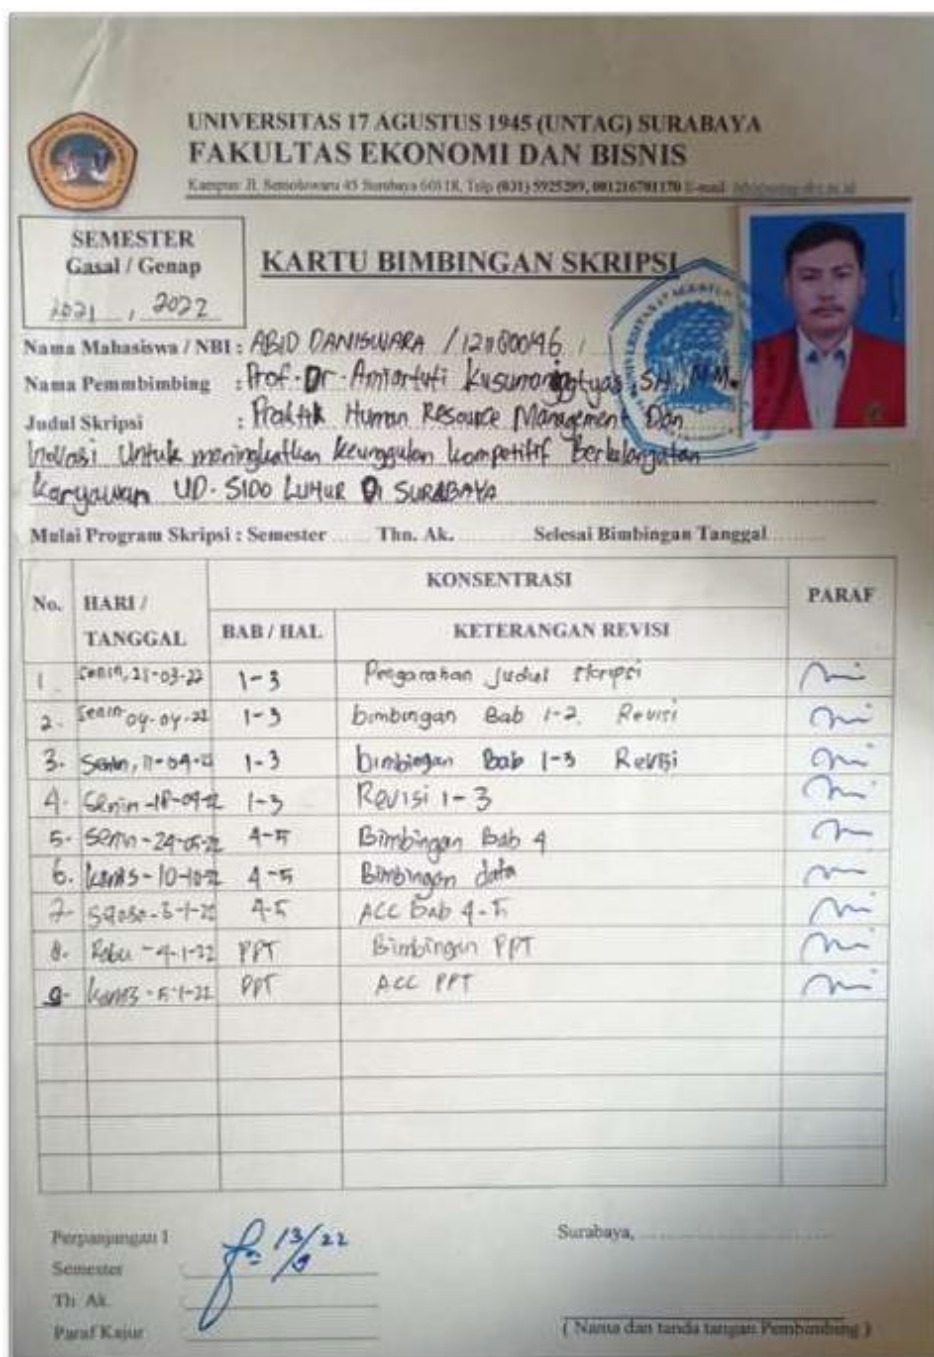 UNIVERSITAS 17 AGUSTUS 1945 (UNTAG) SURABAYA
FAKULTAS EKONOMI DAN BISNIS
Kampus: Jl. Semolowaru 45 Surabaya 60118, Telp (031) 5925289, 081216781170 E-mail:
SEMESTER
Gasal / Genap
2021 , 2022
KARTU BIMBINGAN SKRIPSI
Nama Mahasiswa / NBI : ABID DANISWARA /
Nama Pemmbimbing : Prof. Dr. Amiartuti Kusumaningtyas, SH, MM.
Judul Skripsi : Praktik Human Resource Management Dan
Inovasi Untuk meningkatkan keunggulan kompetitif Berkelanjutan
Karyawan UD. SIDO LUHUR Di SURABAYA
Mulai Program Skripsi : Semester ...... Thn. Ak. ............ Selesai Bimbingan Tanggal ..........
No. HARI / TANGGAL KONSENTRASI PARAF
BAB / HAL KETERANGAN REVISI
1. Senin, 21-03-22 1-3 Pengarahan Judul Skripsi
2. Senin 04-04-22 1-3 bimbingan Bab 1-2 Revisi
3. Senin, 11-04-22 1-3 bimbingan Bab 1-3 Revisi
4. Senin - 18-04-22 1-3 Revisi 1-3
5. Senin - 24-05-22 4-5 Bimbingan Bab 4
6. Kamis - 10-10-22 4-5 Bimbingan data
7. 4-5 ACC Bab 4-5
8. Rabu - 4-1-22 PPT Bimbingan PPT
9. Kamis - 5-1-22 PPT ACC PPT
Perpanjangan I
Semester
Th. Ak.
Paraf Kajur
13/9 22
Surabaya, ..............................
( Nama dan tanda tangan Pembimbing )